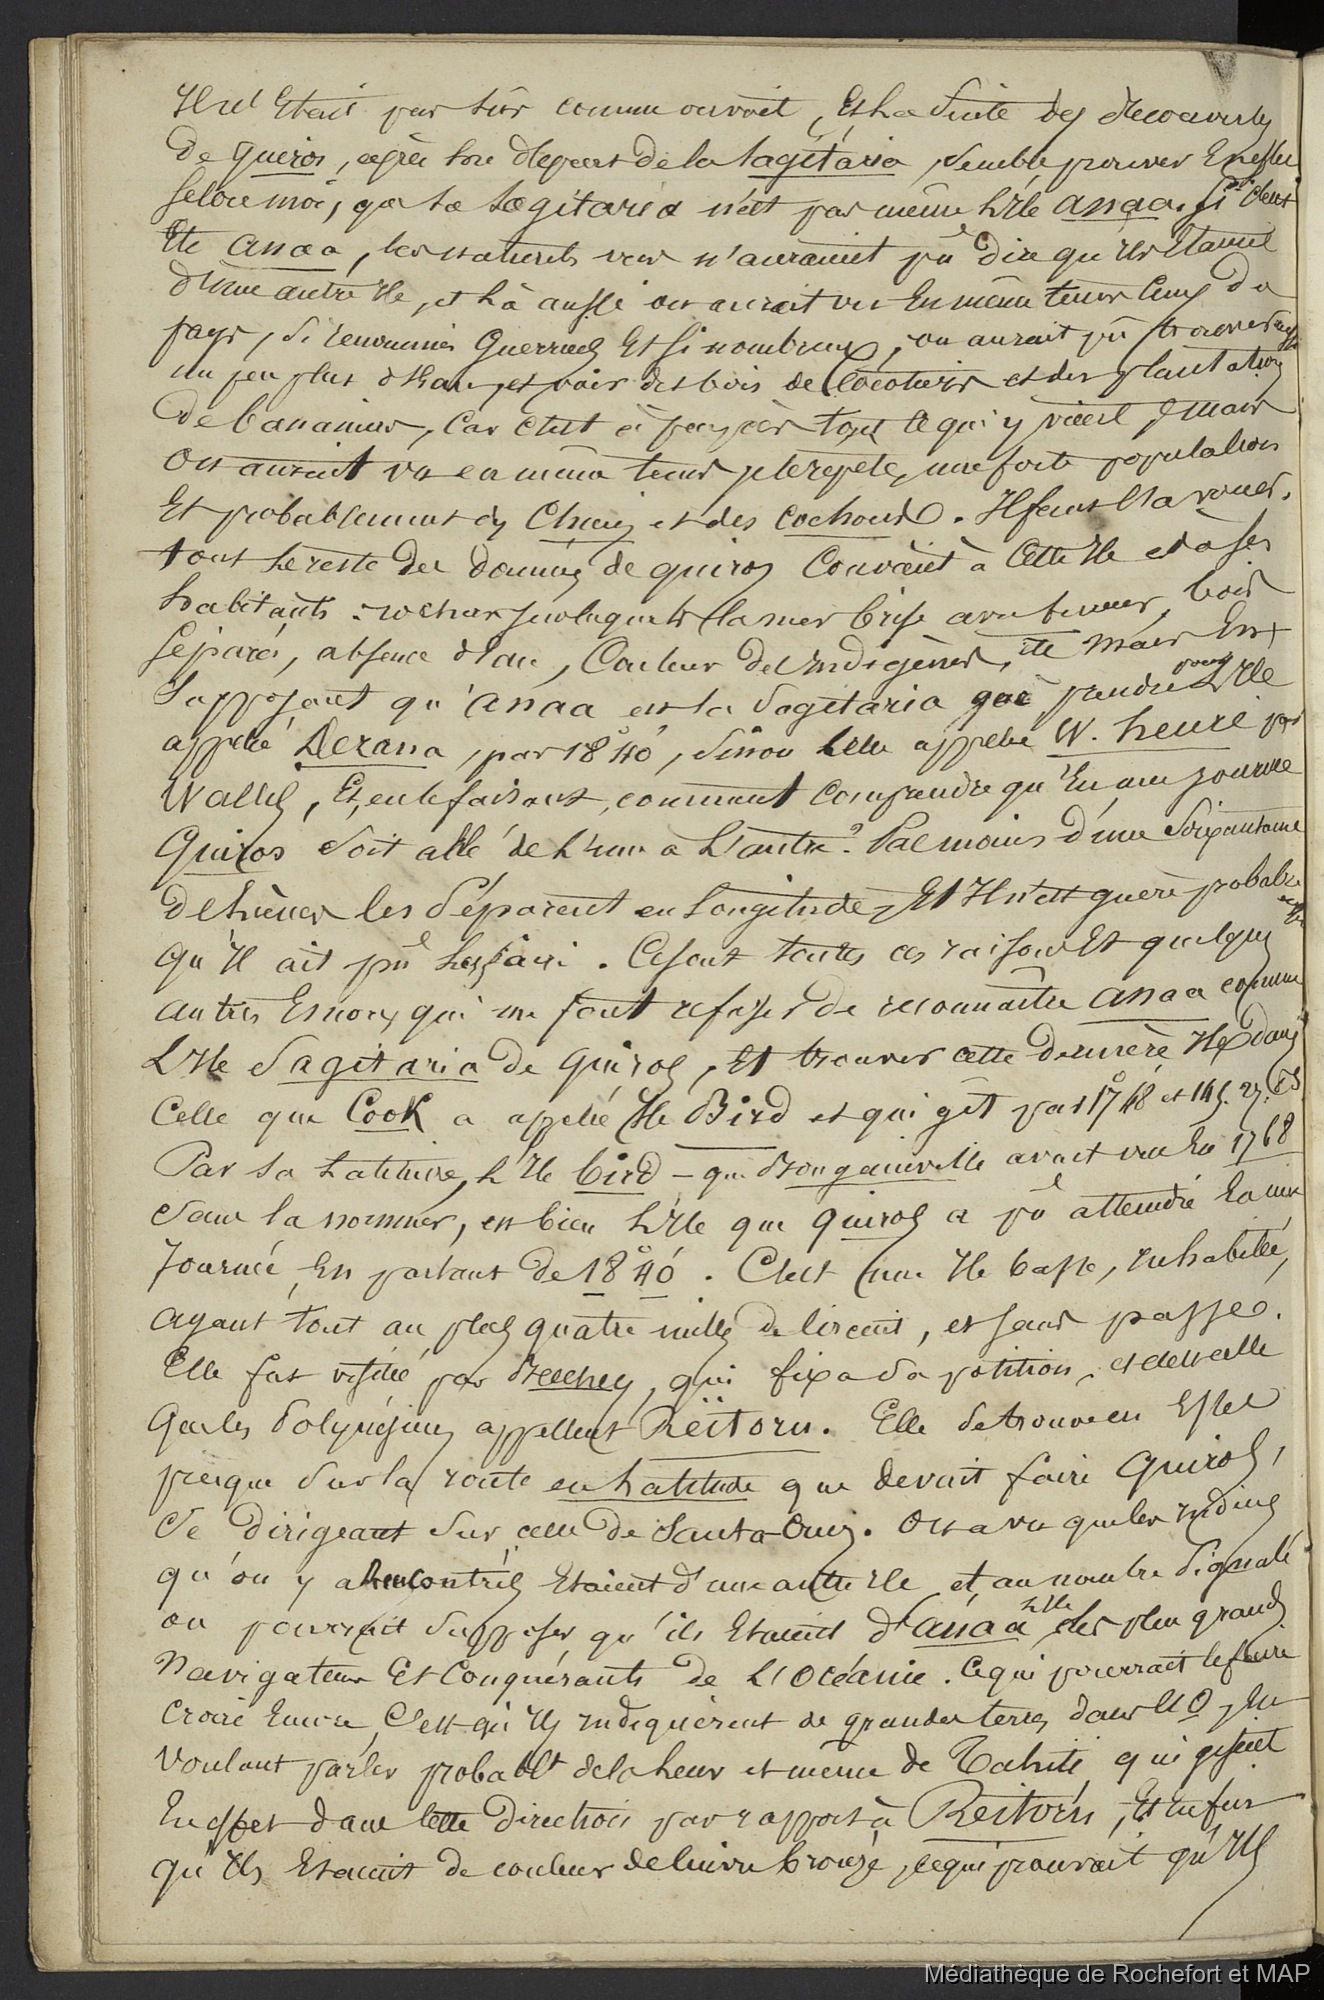 Il n'était pas sûr comme on voit, Et la suite des découvertes
De Quiros, après son départ de la Sagitaria, semble prouver En effet
selon moi, que la Sagitaria n'est pas même L'Ile Anaa. Si c'eut
été Anaa, les naturels vus n'auraient pû dire qu'ils Etaient
d'une autre Ile, et là aussi on aurait vu En même tems ceux du
pays, si renommés Guerriers Et si nombreux, on aurait pû trouver
un peu plus d'Eau, et voir des bois de Cocotiers et des plantations
De bananiers, car c'est à peu près tout ce qui y vient, mais
On aurait vu en même tems, je le repete, une forte population
Et probablement des Chiens et des cochons. Il faut l'avouer,
tout le reste des données de Quiros convient à cette Ile et à ses
habitants : rochers sur lesquels la mer brise avec fureur, bois
séparés, absence d'eau, Couleur des Indigènes, etc mais En
supposant qu'Anaa est la Sagitaria que prendre pour L'Ile
appelée Dezana, par 18° 40', sinon celle appelée W. henri par
Wallis, Et, en le faisant, comment comprendre qu'En une journée
Quiros soit allé de L'une a L'autre? Pas moins d'une soixantaine
de lieues les séparent en Longitude, Et Il n'est guère probable
qu'Il ait pû les faire. Ce sont toutes ces raisons Et quelques
autres Encore qui me font refuser de reconnaître Anaa comme
L'Ile Sagitaria de Quiros, Et trouver cette dernière Ile dans
Celle que Cook a appelée Ile Bird et qui git par 17° 48' et 145. 27.
Par sa Latitude, L'Ile bird - que Bougainville avait vue En 1768
sans la nommer, est bien L'Ile que Quiros a pû atteindre En une
Journée En partant de 18° 40'. C'est une Ile basse, inhabitée,
ayant tout au plus quatre milles de circuit, et sans passe.
Elle fut visitée par Beechey, qui fixa sa position, et c'est celle
que les Polynésiens appellent Reïtoru. Elle se trouve en Effet
presque sur la route en Latitude que devait faire Quiros,
se dirigeant sur celle de Santa Cruz. On a vu que les indiens
qu'on y a rencontrés Etaient d'une autre Ile, et au nombre signalé
on pourrait supposer qu'ils Etaient d'Anaa L'Ile des plus grands
Navigateurs Et Conquérants de L'Océanie. Ce qui pourrait le faire
Croire Encore, C'est qu'Ils indiquèrent de grandes terres dans l'O, En
voulant parler probablt de la leur et même de Tahiti qui gisent
En effet dans cette Direction par rapport à Reitoru, Et Enfin
qu'Ils Etaient de couleur de cuivre bronzé, ce qui prouvait qu'Ils
Médiathèque de Rochefort et MAP